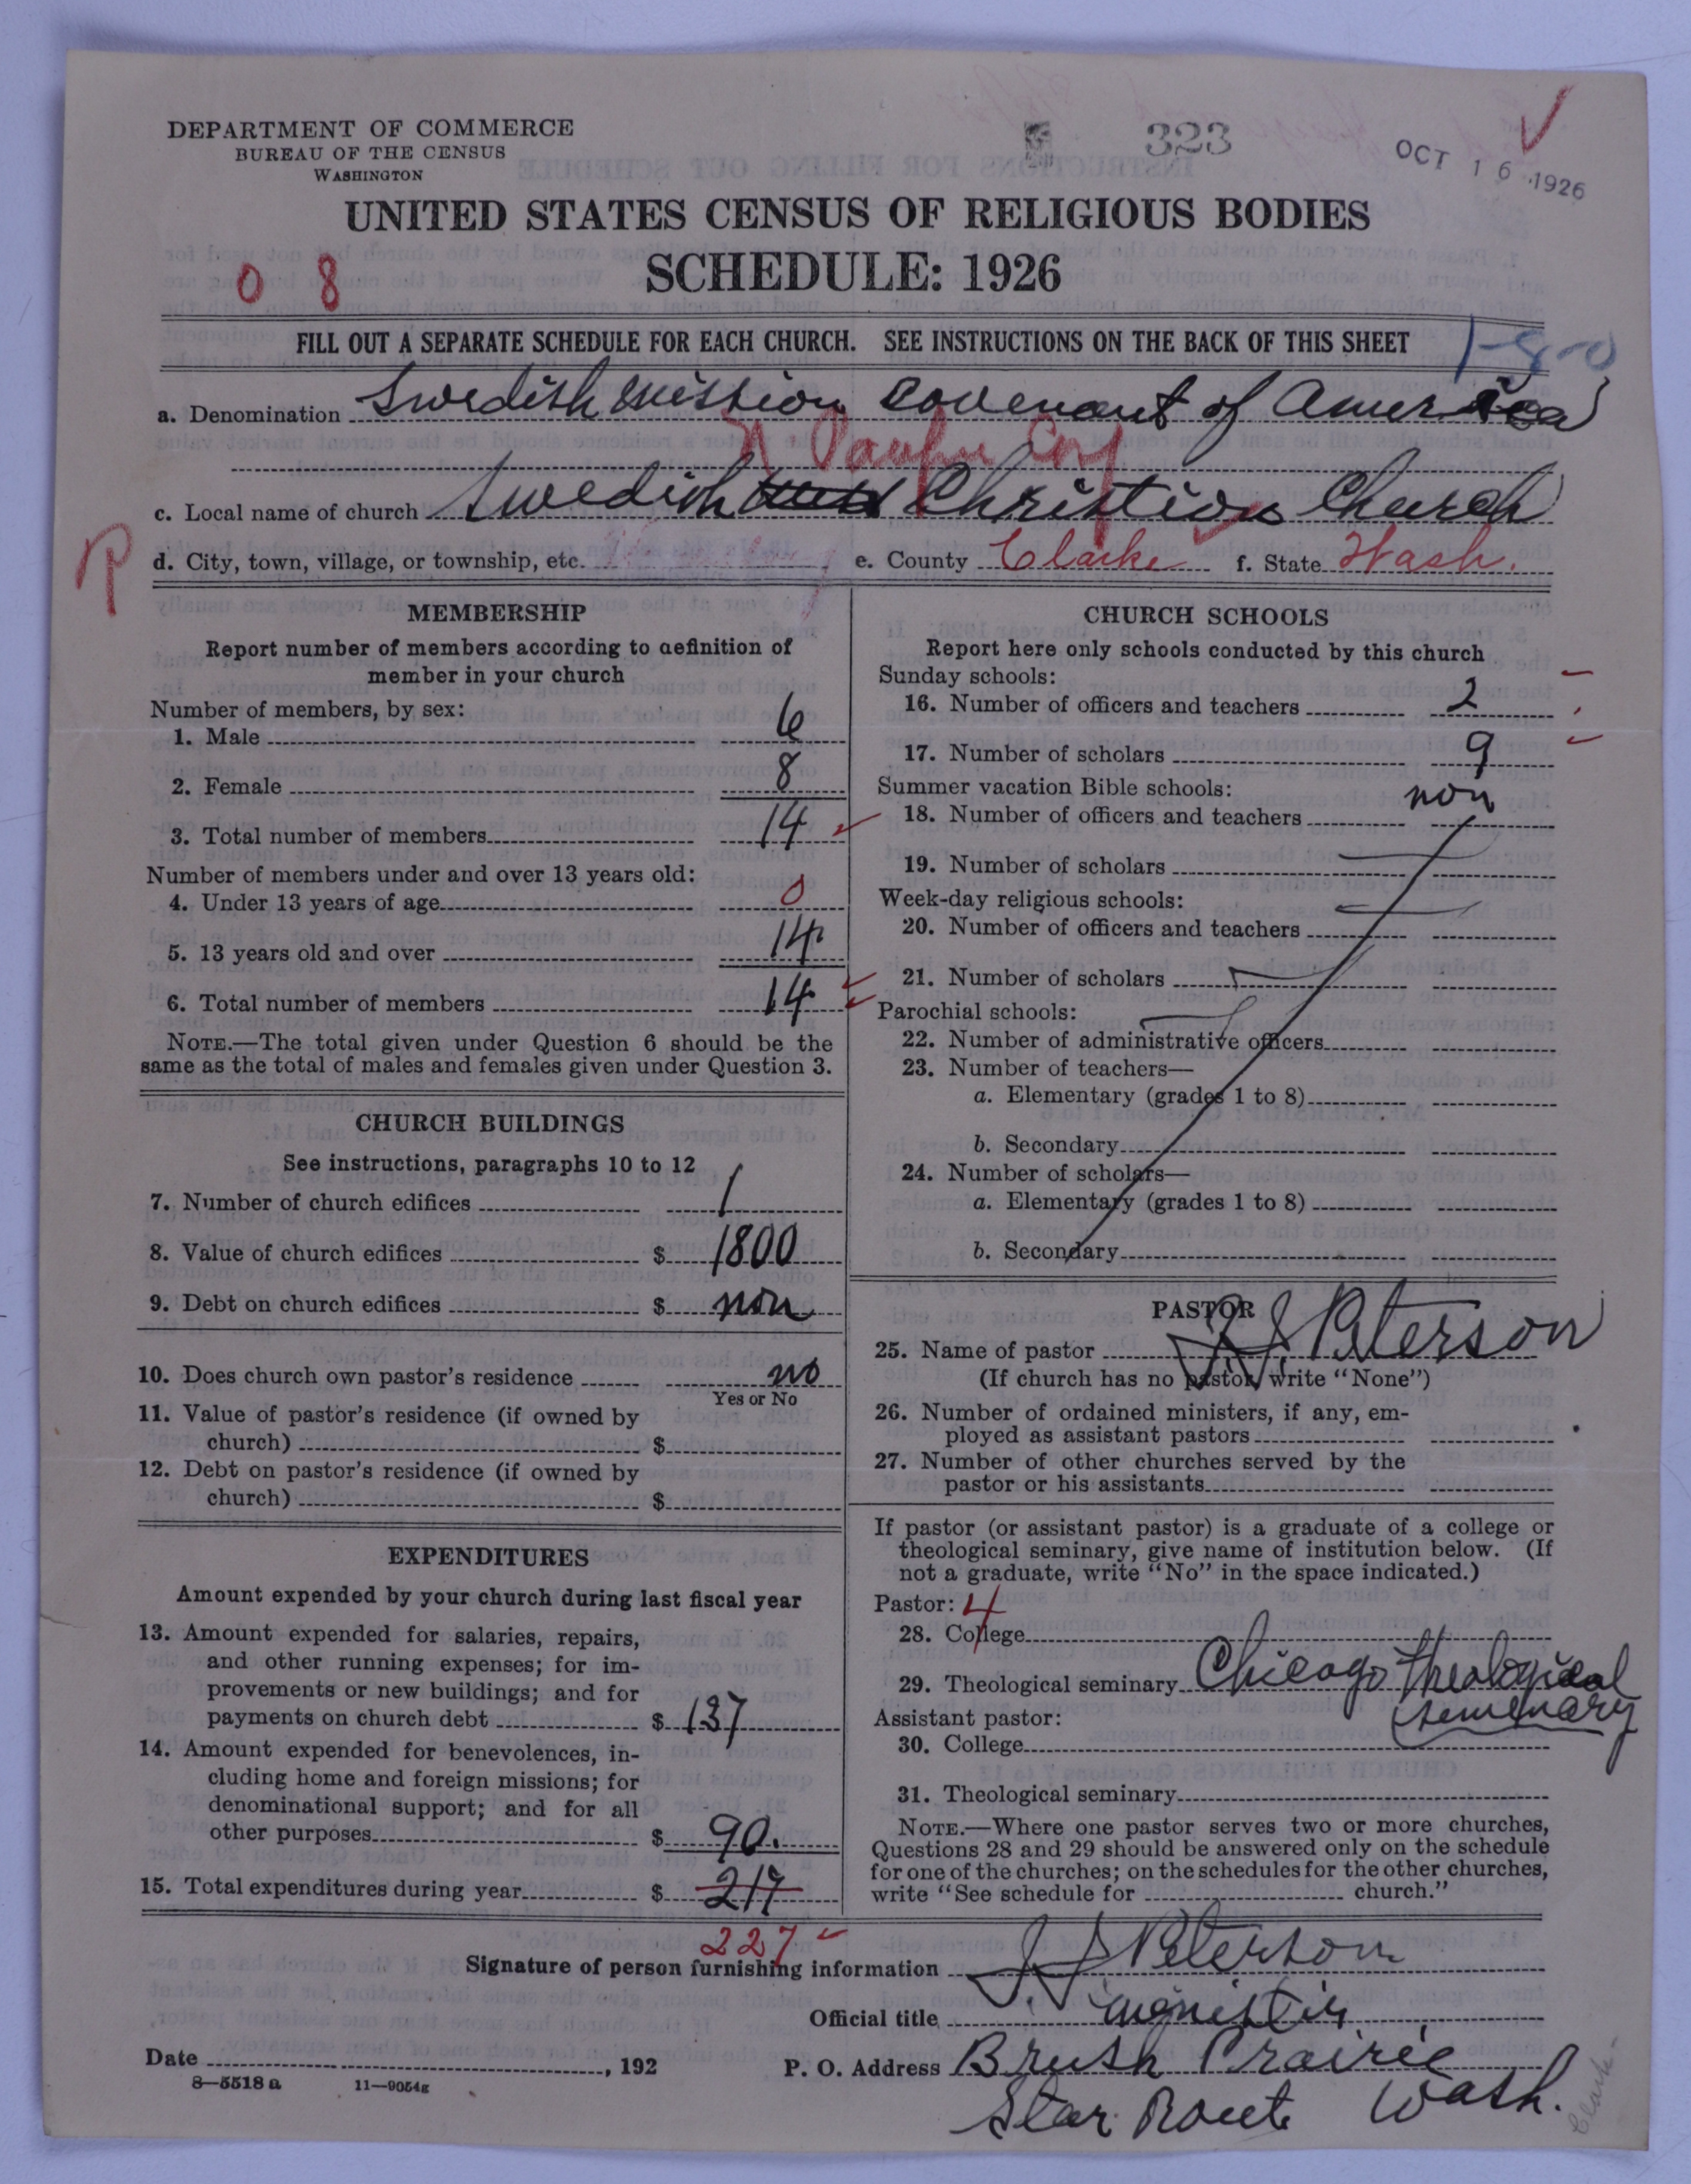 DEPARTMENT OF COMMERCE
BUREAU OF THE CENSUS
WASHINGTON
323
OCT 16 1926
UNITED STATES CENSUS OF RELIGIOUS BODIES
SCHEDULE: 1926
0 8
FILL OUT A SEPARATE SCHEDULE FOR EACH CHURCH. SEE INSTRUCTIONS ON THE BACK OF THIS SHEET
1-8-0
a. Denomination Swedish Mission Covenant of America
N Pacific Conf
c. Local name of church Swedish Christian Church
P
d. City, town, village, or township, etc. e. County Clarke f. State Wash.
MEMBERSHIP
Report number of members according to definition of
member in your church
Number of members, by sex:
1. Male 6
2. Female 8
3. Total number of members 14
Number of members under and over 13 years old:
4. Under 13 years of age 0
5. 13 years old and over 14
6. Total number of members 14
NOTE.—The total given under Question 6 should be the
same as the total of males and females given under Question 3.
CHURCH BUILDINGS
See instructions, paragraphs 10 to 12
7. Number of church edifices 1
8. Value of church edifices $ 1800
9. Debt on church edifices $ non
10. Does church own pastor's residence no
Yes or No
11. Value of pastor's residence (if owned by
church) $
12. Debt on pastor's residence (if owned by
church) $
EXPENDITURES
Amount expended by your church during last fiscal year
13. Amount expended for salaries, repairs,
and other running expenses; for im-
provements or new buildings; and for
payments on church debt $ 137
14. Amount expended for benevolences, in-
cluding home and foreign missions; for
denominational support; and for all
other purposes $ 90.
15. Total expenditures during year $ 217
227
CHURCH SCHOOLS
Report here only schools conducted by this church
Sunday schools:
16. Number of officers and teachers 2
17. Number of scholars 9
Summer vacation Bible schools:
18. Number of officers and teachers non
19. Number of scholars
Week-day religious schools:
20. Number of officers and teachers
21. Number of scholars
Parochial schools:
22. Number of administrative officers
23. Number of teachers—
a. Elementary (grades 1 to 8)
b. Secondary
24. Number of scholars—
a. Elementary (grades 1 to 8)
b. Secondary
PASTOR
25. Name of pastor J. J. Peterson
(If church has no pastor, write "None")
26. Number of ordained ministers, if any, em-
ployed as assistant pastors
27. Number of other churches served by the
pastor or his assistants
If pastor (or assistant pastor) is a graduate of a college or
theological seminary, give name of institution below. (If
not a graduate, write "No" in the space indicated.)
Pastor: 4
28. College
29. Theological seminary Chicago Theological
Semenary
Assistant pastor:
30. College
31. Theological seminary
NOTE.—Where one pastor serves two or more churches,
Questions 28 and 29 should be answered only on the schedule
for one of the churches; on the schedules for the other churches,
write "See schedule for church."
Signature of person furnishing information J. J. Peterson
Official title minister
Date , 192
P. O. Address Brush Prairie
Star Route Wash.
8—5518 a 11—9054g
Clark-